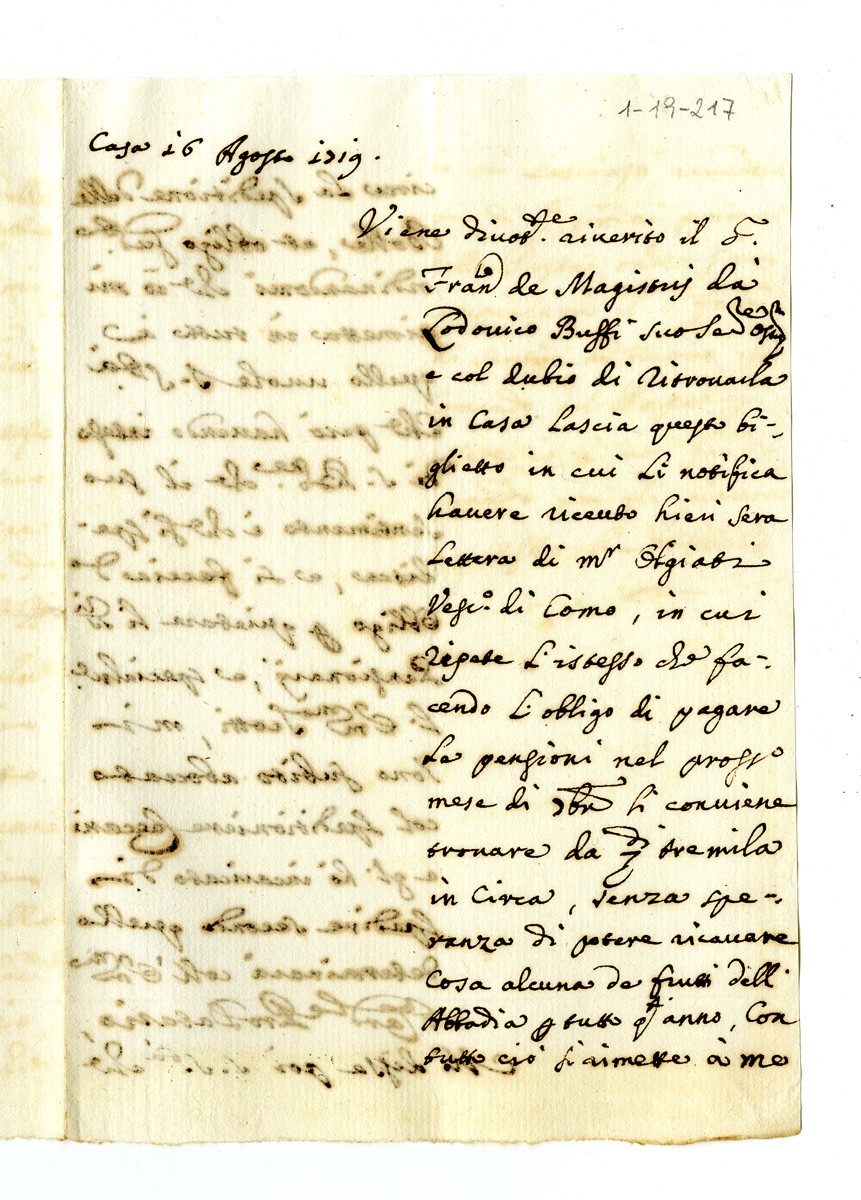 1-19-217
Casa 16 Agosto 1719.
Viene divot.te riverito il S.
Fran.co de Magistris da
Lodovico Buffi suo
e col dubio di ritrovarla
in Casa lascia questo bi-
glietto in cui li notifica
havere riceuto hieri sera
lettera di m.r Olgiati
Vesc.o di Como, in cui
ripete l'istesso che fa-
cendo l'obligo di pagare
le pensioni nel pross.o
mese di 7bre li conviene
trovare da tremila
in circa, senza spe-
ranza di potere ricavare
cosa alcuna de frutti dell'
Abbadia p tutto q.to anno, Con
tutto ciò si rimette à me